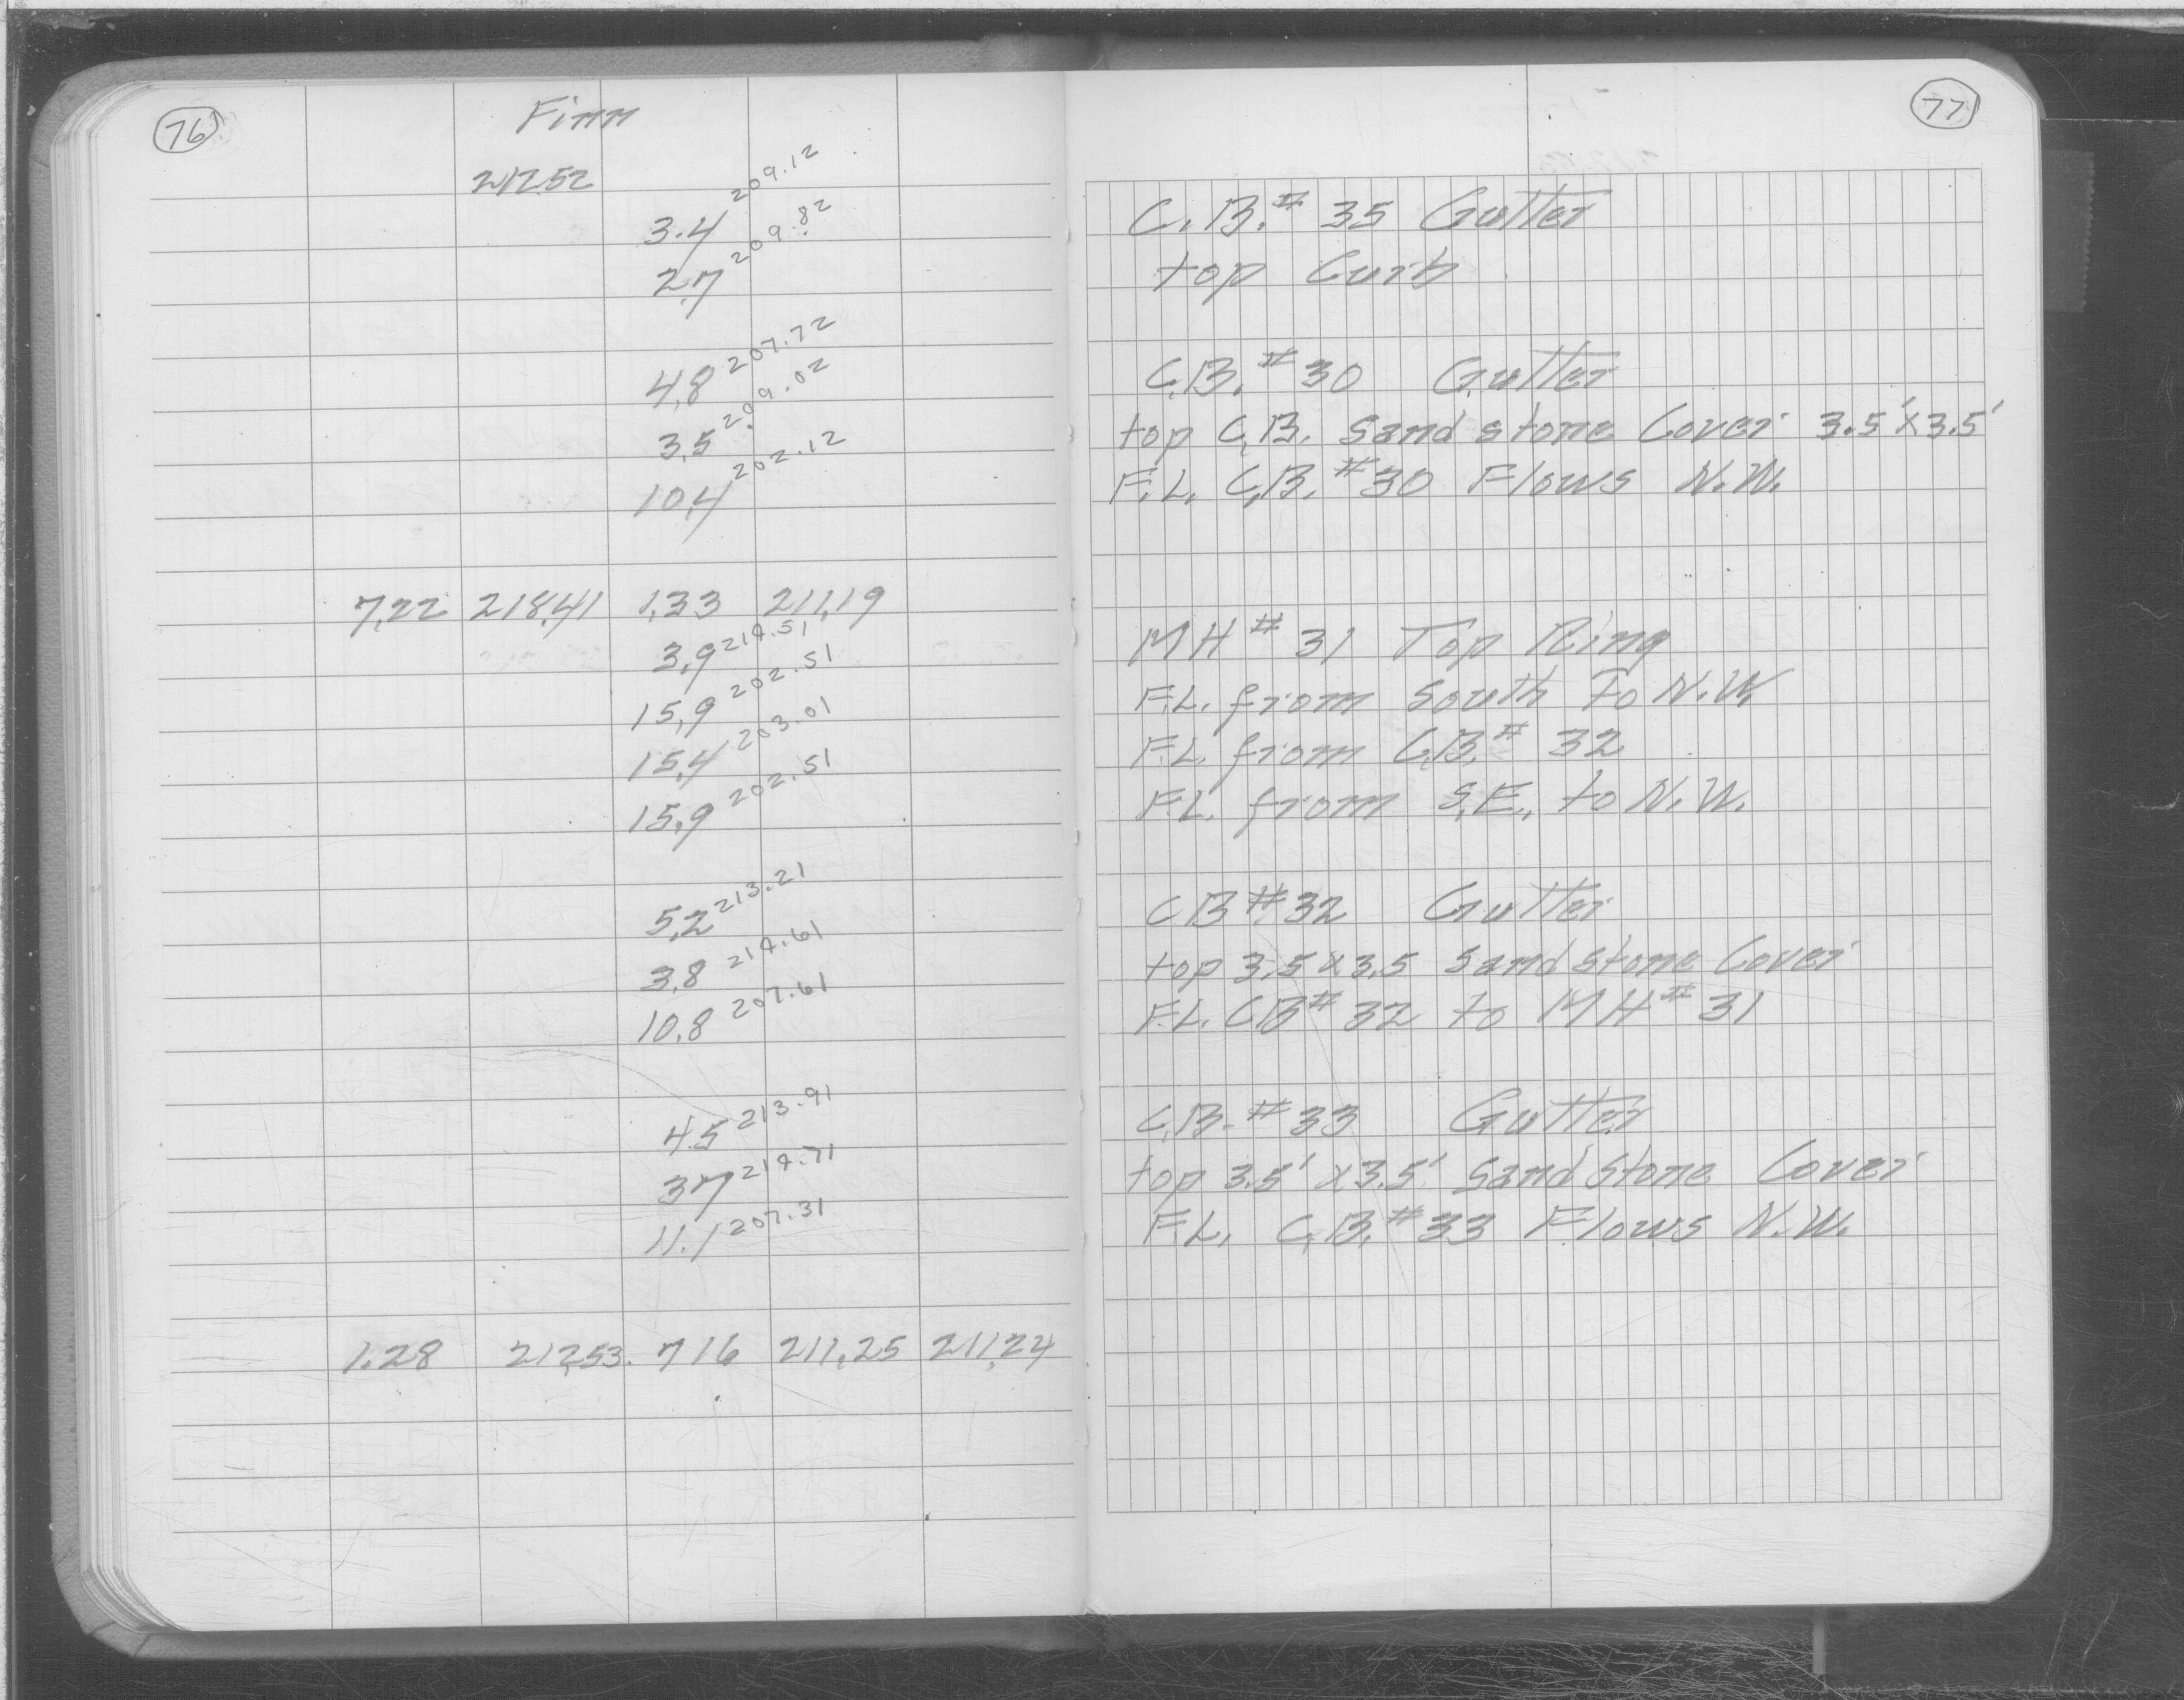 76
Finn
212.52
3.4 209.12
2.7 209.82
4.8 207.72
3.5 209.02
10.4 202.12
7.22 218.41 1.33 211.19
3.9 214.51
15.9 202.51
15.4 203.01
15.9 202.51
5.2 213.21
3.8 214.61
10.8 207.61
4.5 213.91
3.7 214.71
11.1 207.31
1.28 212.53 7.16 211.25 211.24
77
C.B.# 35 Gutter
top Curb
C.B.# 30 Gutter
top C.B. Sand stone Cover 3.5'x3.5'
F.L. C.B.#30 Flows N.W.
MH # 31 Top Ring
F.L. from South To N.W.
F.L. from C.B.# 32
F.L. from S.E. to N.W.
CB #32 Gutter
top 3.5 x 3.5 Sand stone Cover
F.L. CB# 32 to MH # 31
C.B. # 33 Gutter
top 3.5' x 3.5' Sand Stone Cover
F.L. C.B.# 33 Flows N.W.